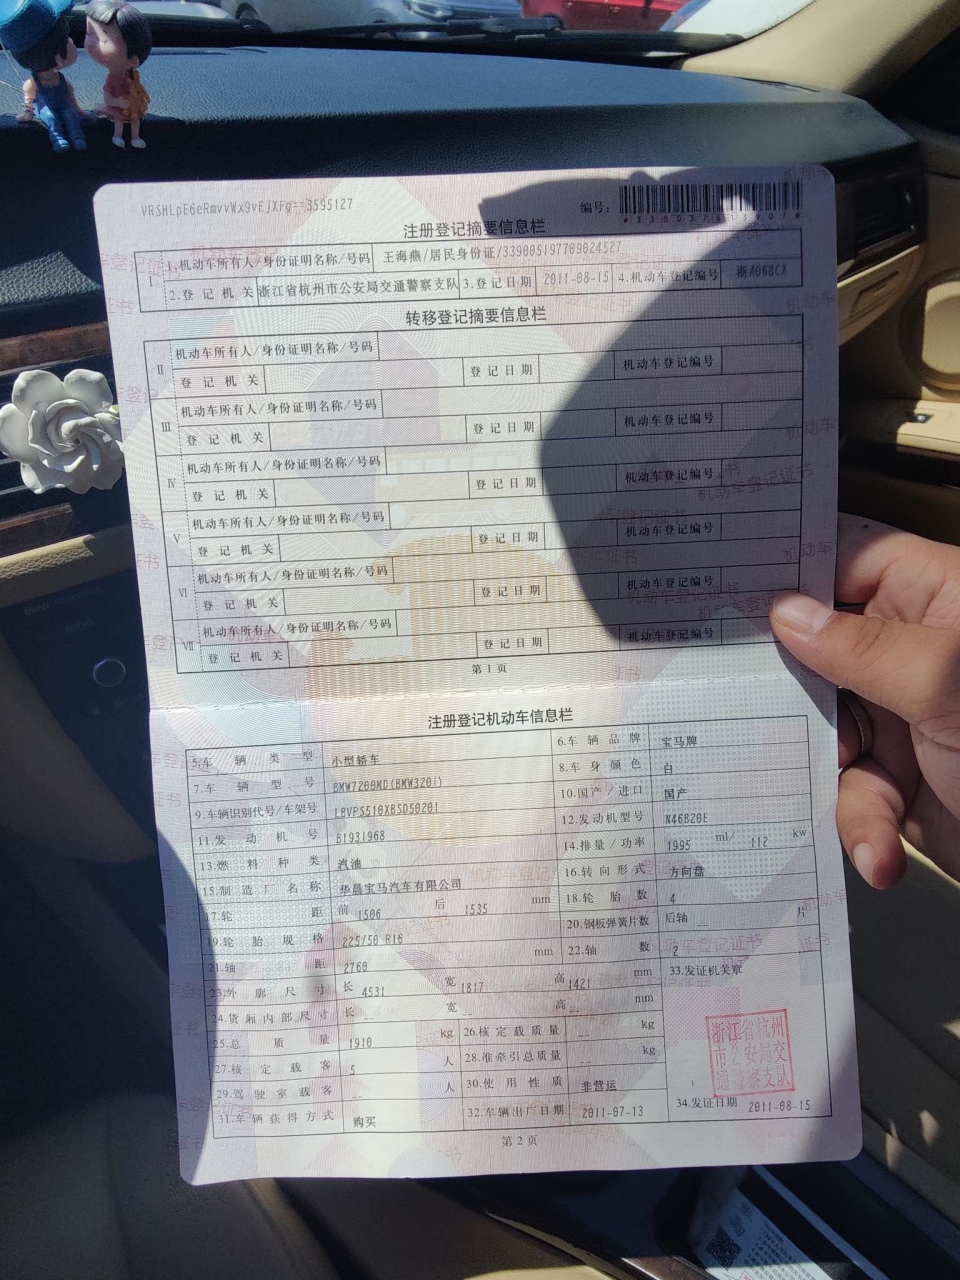 VRSHLpE6eRmvvWx9vEjXFg==3595127
编号:
注册登记摘要信息栏
I 1.机动车所有人/身份证明名称/号码 王海燕/居民身份证/339005197709024527
2.登记机关 浙江省杭州市公安局交通警察支队 3.登记日期 2011-08-15 4.机动车登记编号 浙A068CX
转移登记摘要信息栏
II 机动车所有人/身份证明名称/号码
登记机关 登记日期 机动车登记编号
III 机动车所有人/身份证明名称/号码
登记机关 登记日期 机动车登记编号
IV 机动车所有人/身份证明名称/号码
登记机关 登记日期 机动车登记编号
V 机动车所有人/身份证明名称/号码
登记机关 登记日期 机动车登记编号
VI 机动车所有人/身份证明名称/号码
登记机关 登记日期 机动车登记编号
VII 机动车所有人/身份证明名称/号码
登记机关 登记日期 机动车登记编号
第1页
注册登记机动车信息栏
5.车辆类型 小型轿车 6.车辆品牌 宝马牌
7.车辆型号 BMW7200MD(BMW320i) 8.车身颜色 白
9.车辆识别代号/车架号 LBVPS510XBSD50201 10.国产/进口 国产
11.发动机号 B1931968 12.发动机型号 N46B20E
13.燃料种类 汽油 14.排量/功率 1995 ml/ 112 kw
15.制造厂名称 华晨宝马汽车有限公司 16.转向形式 方向盘
17.轮距 前 1506 后 1535 mm 18.轮胎数 4
19.轮胎规格 225/50 R16 20.钢板弹簧片数 后轴 -- 片
21.轴距 2760 mm 22.轴数 2
23.外廓尺寸 长 4531 宽 1817 高 1421 mm 33.发证机关章
24.货厢内部尺寸 长 -- 宽 -- 高 -- mm
25.总质量 1910 kg 26.核定载质量 -- kg
27.核定载客 5 人 28.准牵引总质量 -- kg
29.驾驶室载客 -- 人 30.使用性质 非营运
31.车辆获得方式 购买 32.车辆出厂日期 2011-07-13 34.发证日期 2011-08-15
浙江省杭州
市公安局交
通警察支队
第2页